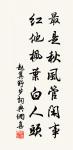 最是秋風管閑事
紅他楓葉白人頭
趙翼野步詞典網集